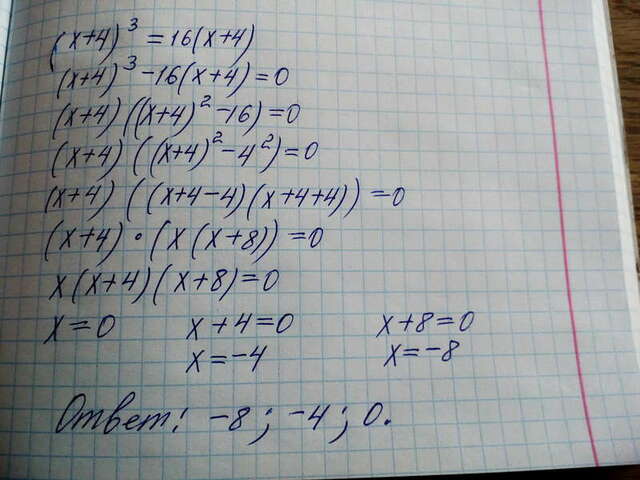 (x+4)³ = 16(x+4)
(x+4)³ - 16(x+4) = 0
(x+4)((x+4)² - 16) = 0
(x+4)((x+4)² - 4²) = 0
(x+4)((x+4-4)(x+4+4)) = 0
(x+4)·(x(x+8)) = 0
x(x+4)(x+8) = 0
x = 0 x+4 = 0 x+8 = 0
x = -4 x = -8
Ответ: -8; -4; 0.